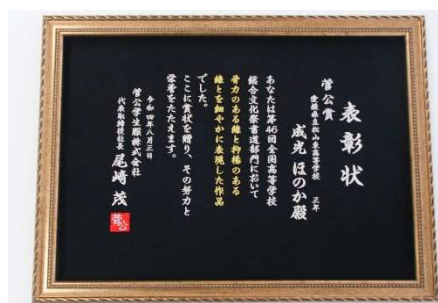 表彰状
菅公賞
愛媛県立松山東高等学校
成光 ほのか殿
あなたは第46回全国高等学校
総合文化祭書道部門において
骨力のある線と抑揚のある
線とを細やかに表現した作品
でした。
ここに賞状を贈り、その努力と
栄誉をたたえます。
令和四年八月三日
菅公学生服株式会社
代表取締役社長 尾﨑 茂
菅公